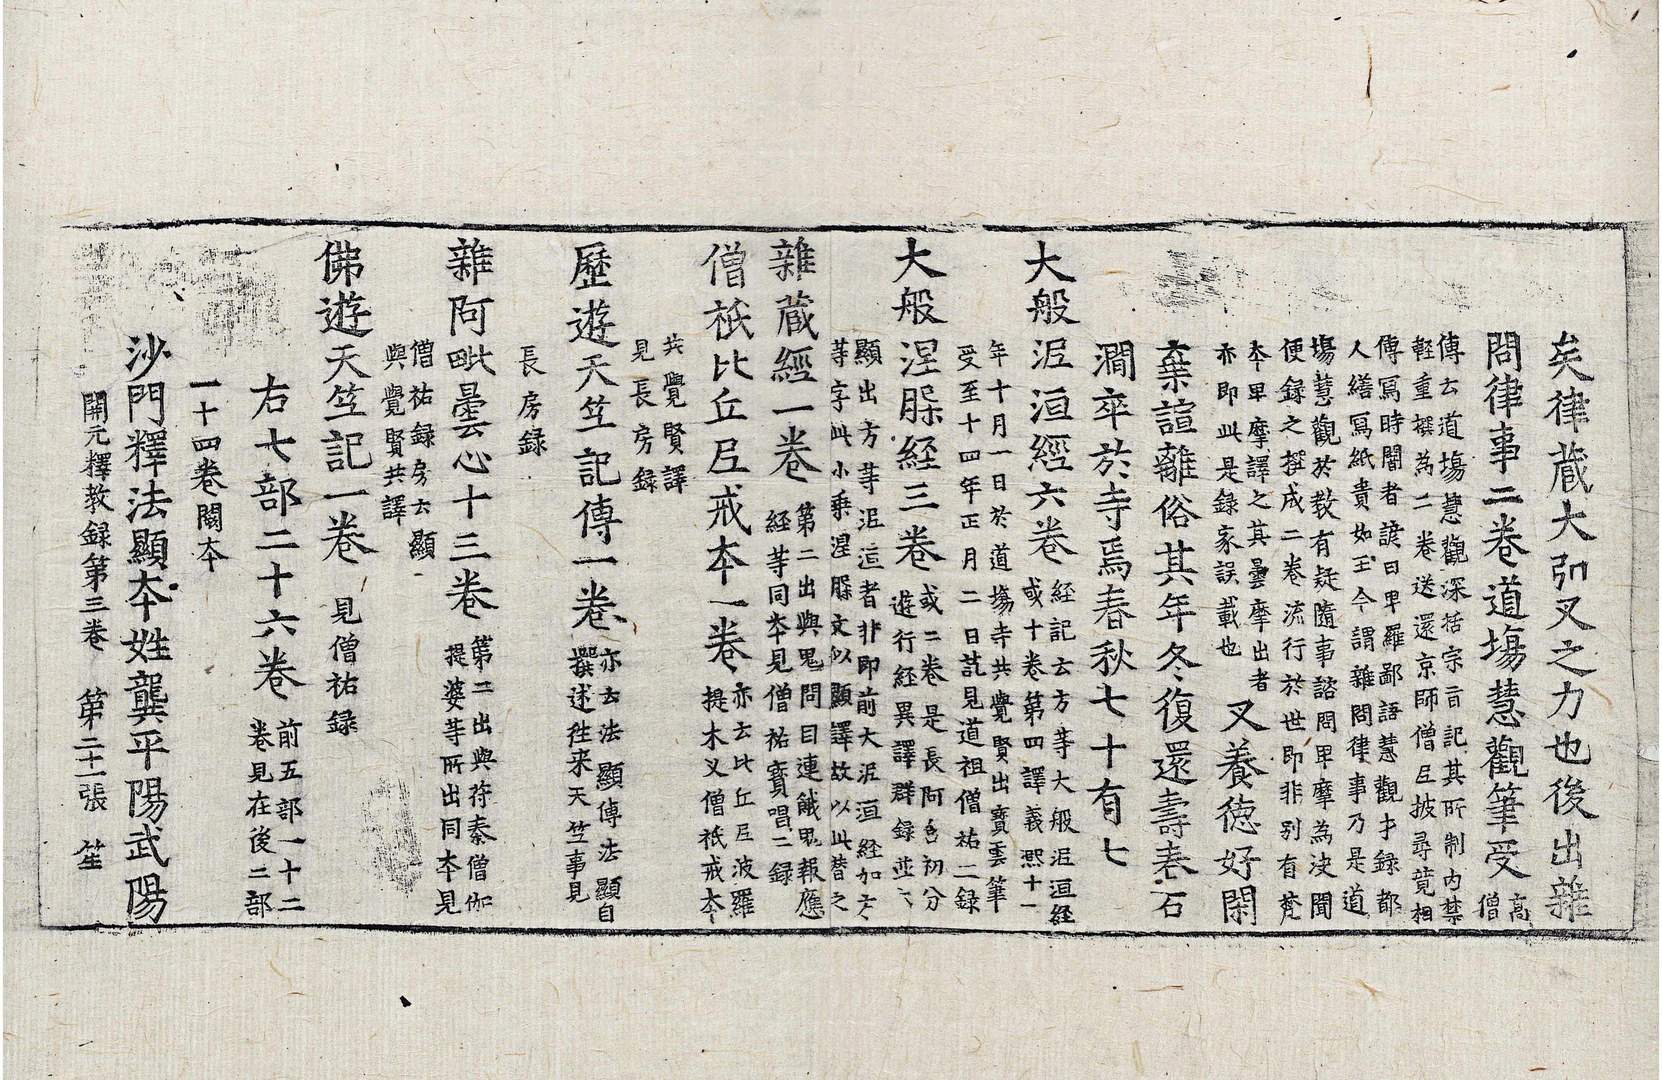 矣律藏大弘叉之力也後出雜
問律事二卷道場慧觀筆受高
僧
傳云道場慧觀深括宗旨記其所制內禁
輕重撰為二卷送還京師僧尼披尋競相
傳寫時聞者諺曰卑羅鄙語慧觀才錄都
人繕寫紙貴如玉今謂雜問律事乃是道
場慧觀於教有疑隨事諮問卑摩為决聞
便錄之撰成二卷流行於世即非別有梵
本卑摩譯之其曇摩出者
亦即此是錄家誤載也
又養德好閑
棄諠離俗其年冬復還壽春石
澗卒於寺焉春秋七十有七
大般泥洹經六卷
經記云方等大般泥洹經
或十卷第四譯義熙十一
年十月一日於道場寺共覺賢出寶雲筆
受至十四年正月二日訖見道祖僧祐二錄
大般涅槃經三卷
或二卷是長阿含初分
遊行經異譯群錄並云
顯出方等泥洹者非即前大泥洹經加方
等字此小乘涅槃文似顯譯故以此替之
雜藏經一卷
第二出與鬼問目連餓鬼報應
經等同本見僧祐寶唱二錄
僧祇比丘尼戒本一卷
亦云比丘尼波羅
提木叉僧祇戒本
共覺賢譯
見長房錄
歷遊天竺記傳一卷
亦云法顯傳法顯自
撰述往來天竺事見
長房錄
雜阿毗曇心十三卷
第二出與苻秦僧伽
提婆等所出同本見
僧祐錄房云顯
與覺賢共譯
佛遊天竺記一卷
見僧祐錄
右七部二十六卷
前五部一十二
卷見在後二部
一十四卷闕本
沙門釋法顯本姓龔平陽武陽
開元釋教錄第三卷 第二十一張 笙